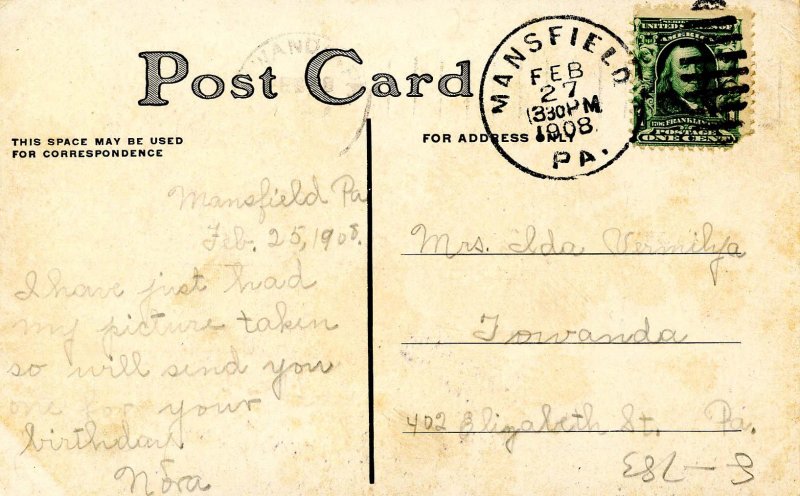 Post Card
THIS SPACE MAY BE USED
FOR CORRESPONDENCE
FOR ADDRESS ONLY
MANSFIELD
FEB
27
1908
PA.
SERIES 1902
UNITED STATES OF
AMERICA
FRANKLIN
POSTAGE
ONE CENT
Mansfield Pa
Feb. 25, 1908.
I have just had
my picture taken
so will send you
one for your
birthday
Nora
Mrs. Ida Vermilya
Towanda
402 Elizabeth St. Pa.